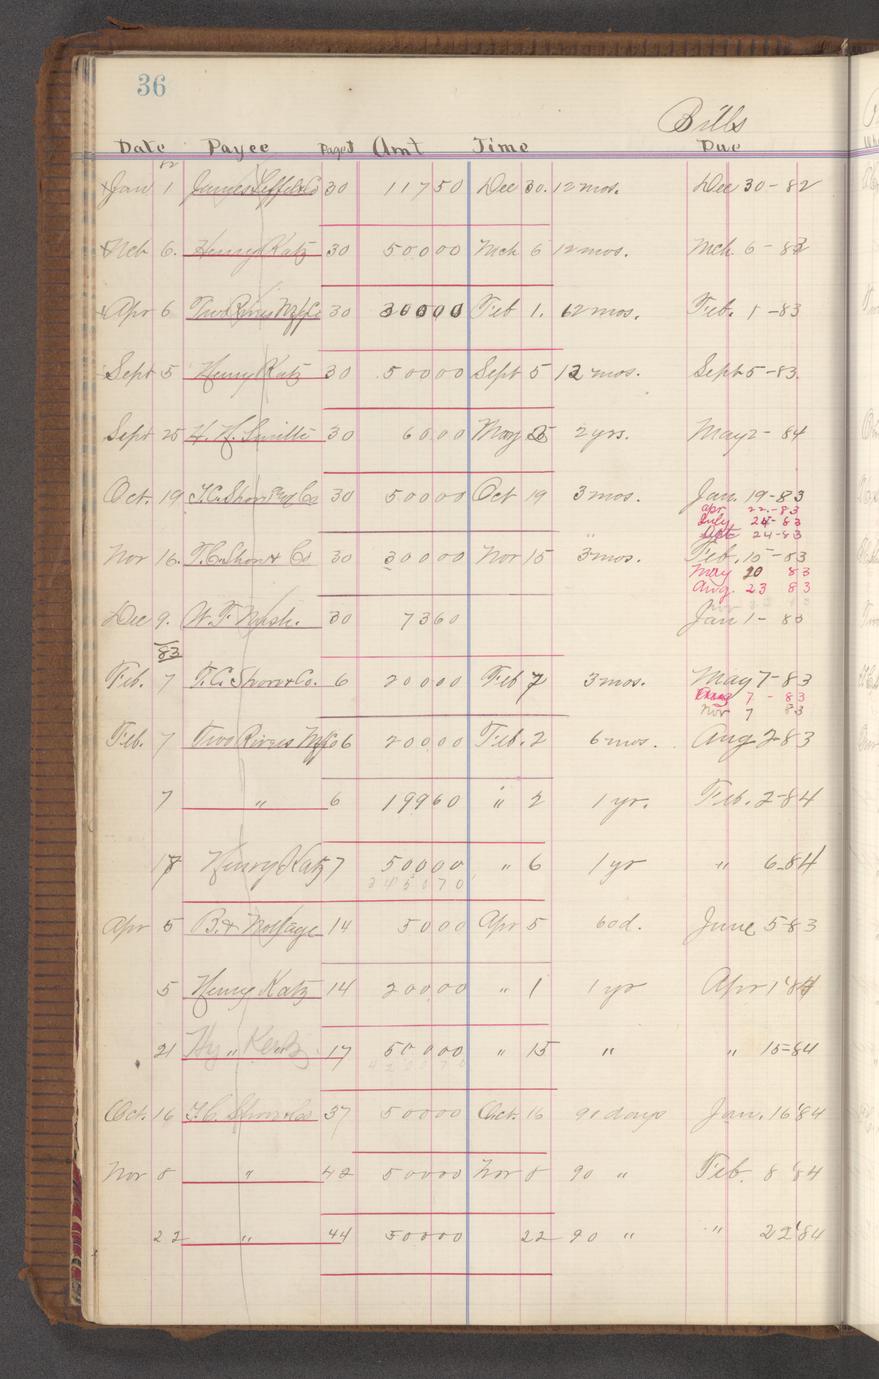 36
Bills
Date Payee Page Amt Time Due
82
Jan 1 James Leffel & Co 30 117 50 Dec 30. 12 mos. Dec 30 - 82
Feb 6. Henry Katz 30 500 00 Mch 6 12 mos. Mch. 6 - 83
Apr 6 Two Rivers Mfg Co 30 300 00 Feb 1. 12 mos. Feb. 1 - 83
Sept 5 Henry Katz 30 500 00 Sept 5 12 mos. Sept 5 - 83
Sept 25 H. H. Smith 30 60 00 May 2 yrs. May 2 - 84
Oct. 19 T.C. Shove & Co 30 500 00 Oct 19 3 mos. Jan. 19 - 83
Apr. 22 - 83
July 24 - 83
Oct 24 - 83
Nov 16. T.C. Shove & Co 30 300 00 Nov 15 3 mos. Feb. 15 - 83
May 20 83
Aug. 23 83
Dec 9. W. F. Nash. 30 73 60 Jan 1 - 83
/83
Feb. 7 T.C. Shove & Co. 6 200 00 Feb 7 3 mos. May 7 - 83
Aug 7 - 83
Nov 7 83
Feb. 7 Two Rivers Mfg Co 6 200 00 Feb. 2 6 mos. Aug 2 - 83
7 " 6 199 60 " 2 1 yr. Feb. 2 - 84
17 Henry Katz 7 500 00 " 6 1 yr " 6 - 84
Apr 5 B. & Nottage 14 50 00 Apr 5 60 d. June 5 - 83
5 Henry Katz 14 200 00 " 1 1 yr Apr 1 '84
21 Hy " Katz 17 500 00 " 15 " " 15 - 84
Oct. 16 T.C. Shove & Co 37 500 00 Oct. 16 90 days Jan. 16 '84
Nov 8 " 42 500 00 Nov 8 90 " Feb. 8 '84
22 " 44 500 00 22 90 " " 22 '84